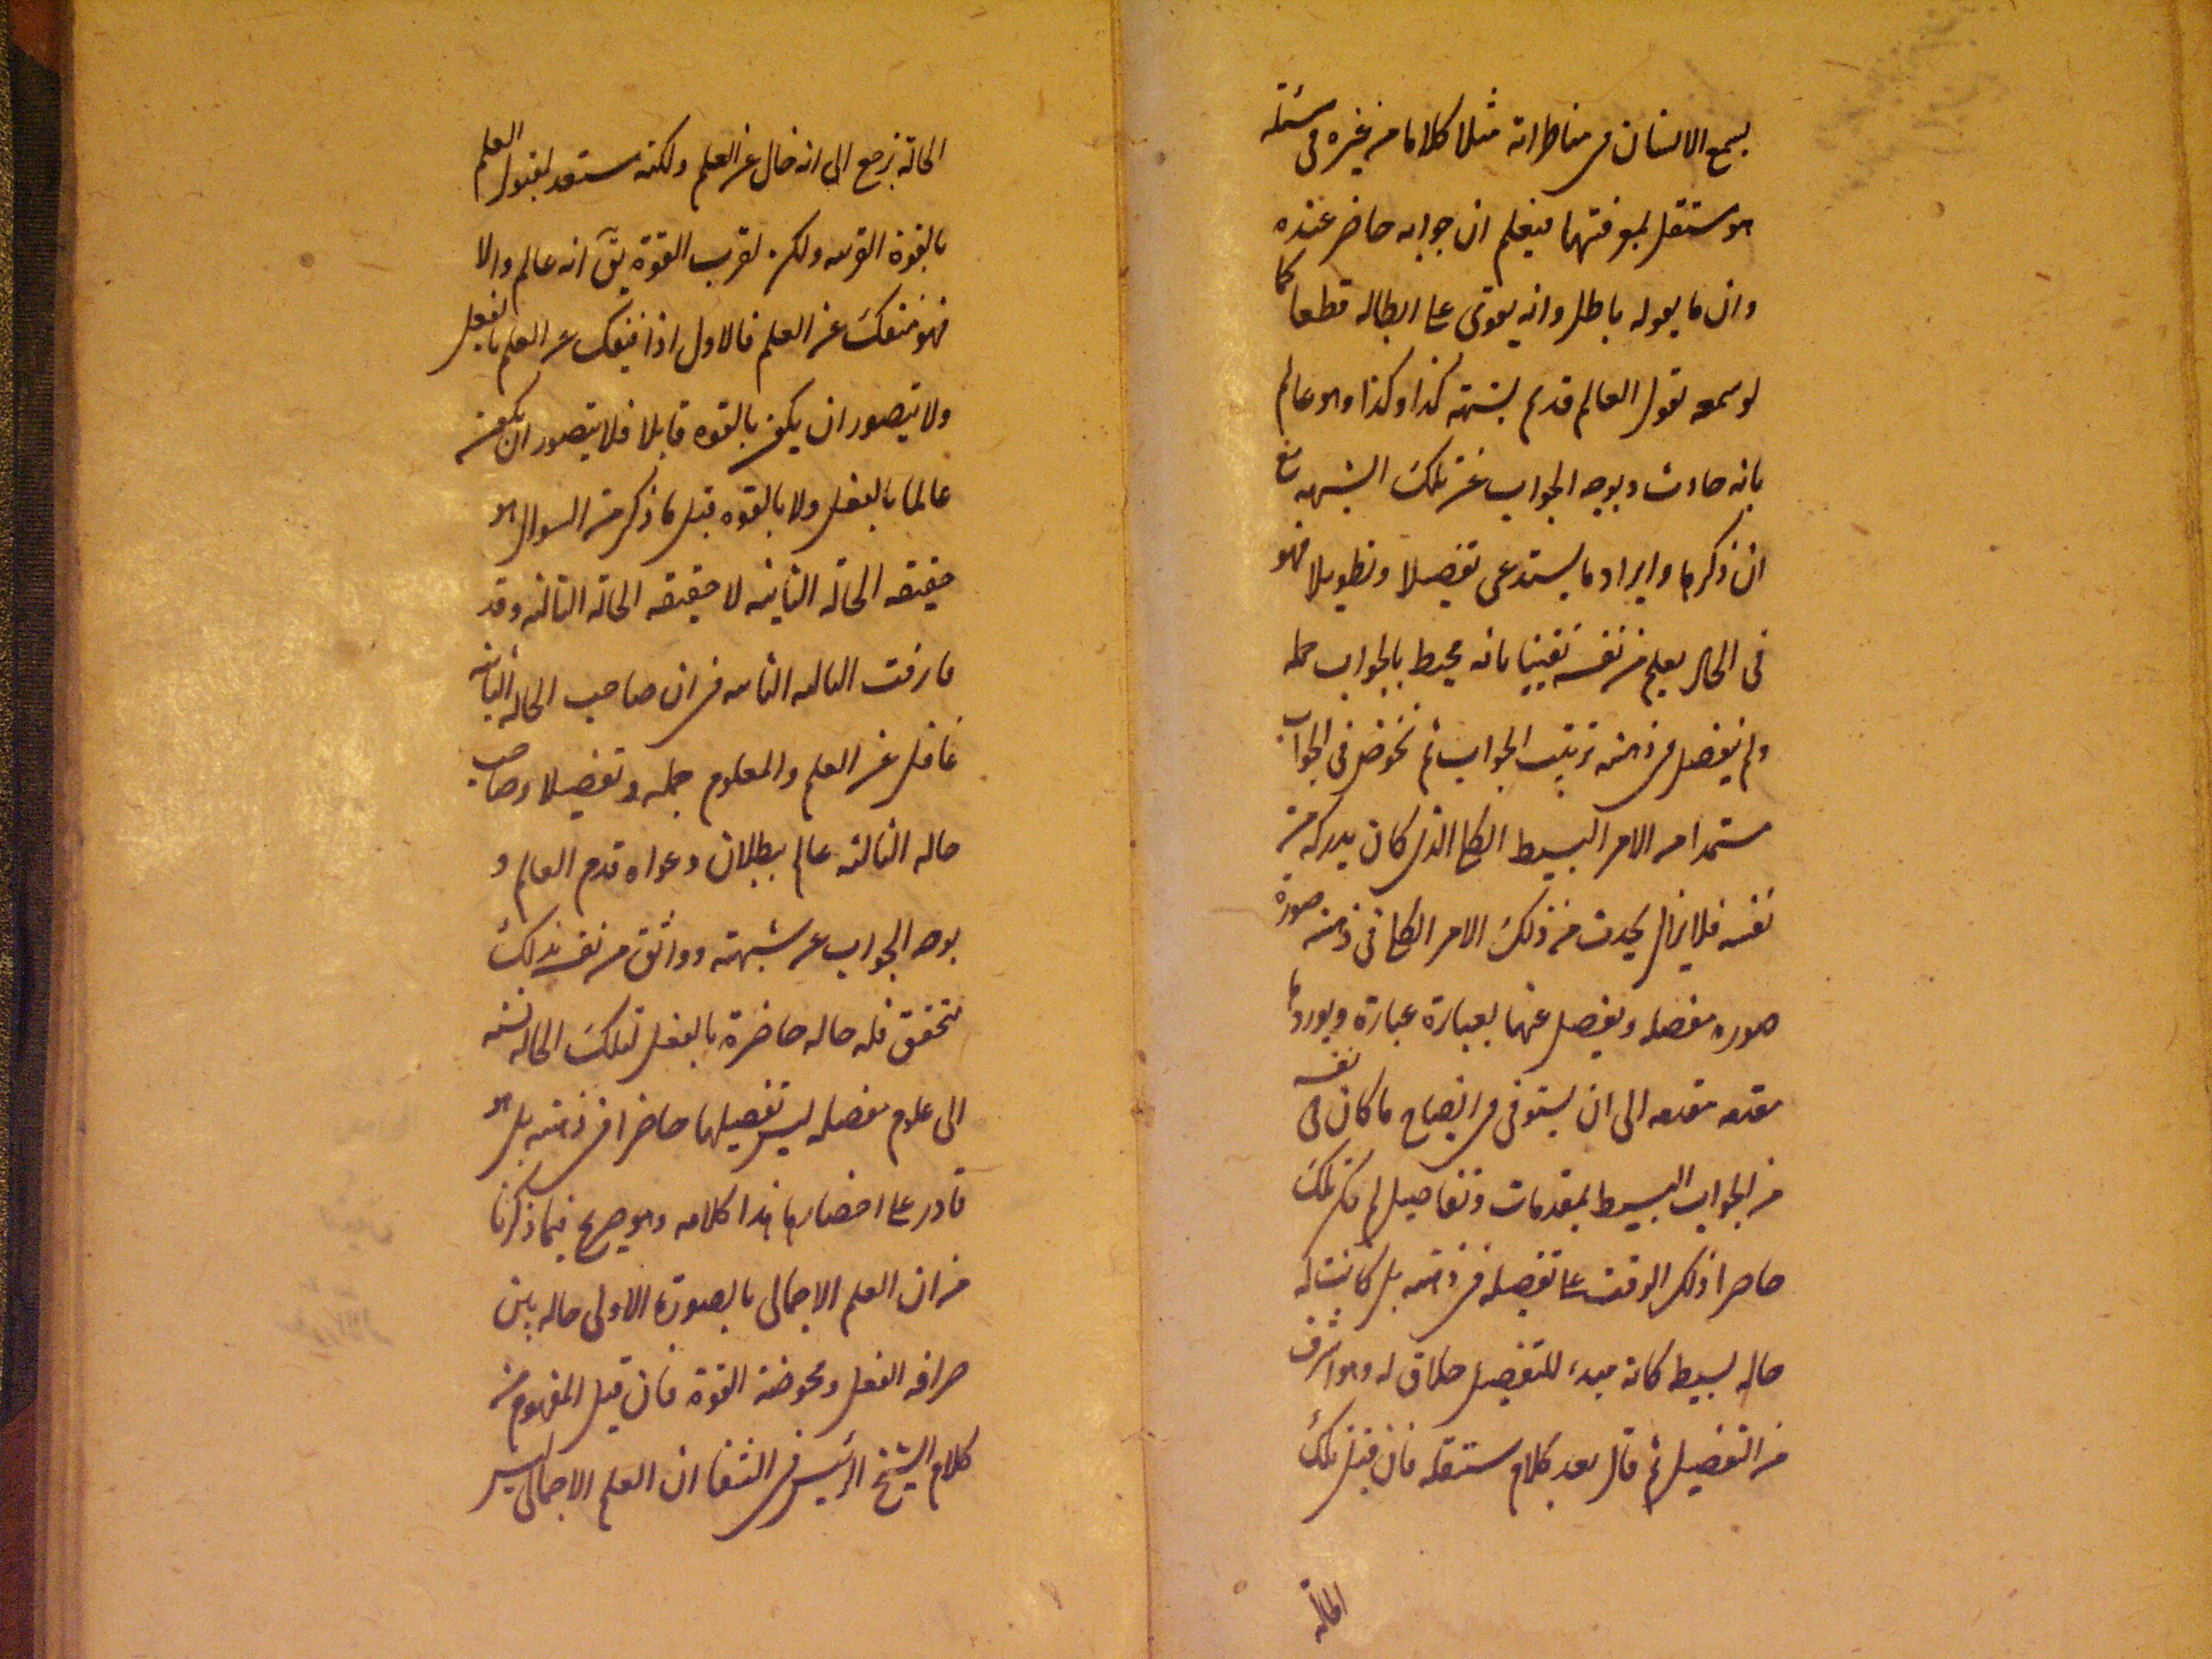 يسمع الانسان فى مناظراته مثلا كلاما من غيره فى مسئلة
هو مستقل بمعرفتهما فيعلم ان جوابه حاضر عنده
وان ما يقوله باطل وانه يقوى على ابطاله قطعا كما
لو سمعه يقول العالم قديم لشبهة كذا وكذا وهو عالم
بانه حادث وبوجه الجواب عن تلك الشبهه مع
ان ذكرها وايرادها يستدعى تفصيلا وتطويلا فهو
فى الحال يعلم من نفسه يقينا بانه محيط بالجواب جمله
ولم ينفصل فى ذهنه ترتيب الجواب ثم يخوض فى الجواب
مستمدا من الامر البسيط الكلى الذى كان يدركه من
نفسه فلا يزال يحدث من ذلك الامر الكلى فى ذهنه صورة
صوره مفصله ويفصل عنها بعبارة عبارة ويوردها
مقدمه مقدمه الى ان يستوفى فى ايضاح ما كان فى نفسه
من الجواب البسيط بمقدمات وتفاصيل لم يكن تلك
حاضرا ذلك الوقت على تفصيله فى ذهنه بل كانت له
حاله بسيط كانه مبدء للتفصيل خلاق له وهو اشرف
من التفصيل ثم قال بعد كلام مستقله فان قيل تلك
الحالة
الحالة ترجع الى انه خال عن العلم ولكنه مستعد لقبول العلم
بالقوة القريبه ولكن لقرب القوة يق انه عالم والا
فهو منفك عن العلم فالاول اذا ينفك عن العلم بالفعل
ولا يتصور ان يكون بالقوه قابلا فلا يتصور ان يكون
عالما بالفعل ولا بالقوه قيل ما ذكر من السوال هو
حقيقه الحالة الثانيه لا حقيقه الحالة الثالثه وقد
فارقت الثالثه الثانيه فى ان صاحب الحاله الثانيه
غافل عن العلم والمعلوم جمله وتفصيلا وصاحب
حاله الثالثه عالم ببطلان دعواه قدم العالم و
بوجه الجواب عن شبهته وواثق من نفسه بذلك
متحقق فله حاله حاضرة بالفعل لتلك الحاله نسبه
الى علوم مفصله ليس تفصيلها حاضرا فى ذهنه بل هو
قادر على احضارها هذا كلامه وهو صريح فيما ذكرنا
من ان العلم الاجمالى بالصورة الاولى حاله بين
صرافه الفعل ومحوضة القوة فان قيل المفهوم من
كلام الشيخ الرئيس فى الشفا ان العلم الاجمالى ليس